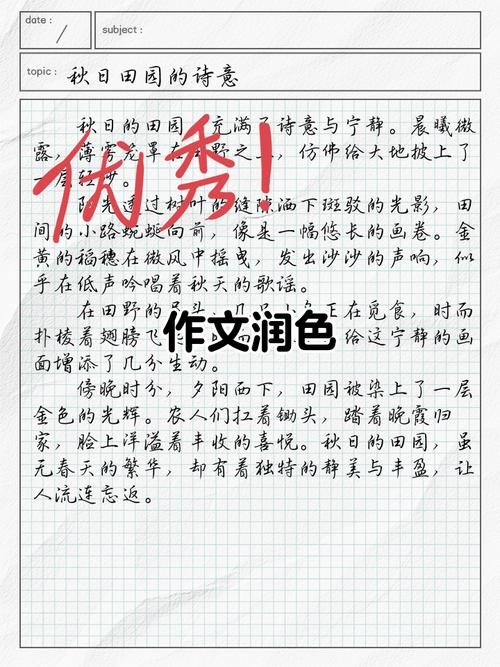 date :
subject :
topic : 秋日田园的诗意
秋日的田园 充满了诗意与宁静。晨曦微
露，薄雾笼罩在田野之上，仿佛给大地披上了
一层轻纱。
阳光透过树叶的缝隙洒下斑驳的光影，田
间的小路蜿蜒向前，像是一幅悠长的画卷。金
黄的稻穗在微风中摇曳，发出沙沙的声响，似
乎在低声吟唱着秋天的歌谣。
在田野的尽头，几只小鸟正在觅食，时而
扑棱着翅膀飞 给这宁静的画
面增添了几分生动。
傍晚时分，夕阳西下，田园被染上了一层
金色的光辉。农人们扛着锄头，踏着晚霞归
家，脸上洋溢着丰收的喜悦。秋日的田园，虽
无春天的繁华，却有着独特的静美与丰盈，让
人流连忘返。
优秀！
作文润色